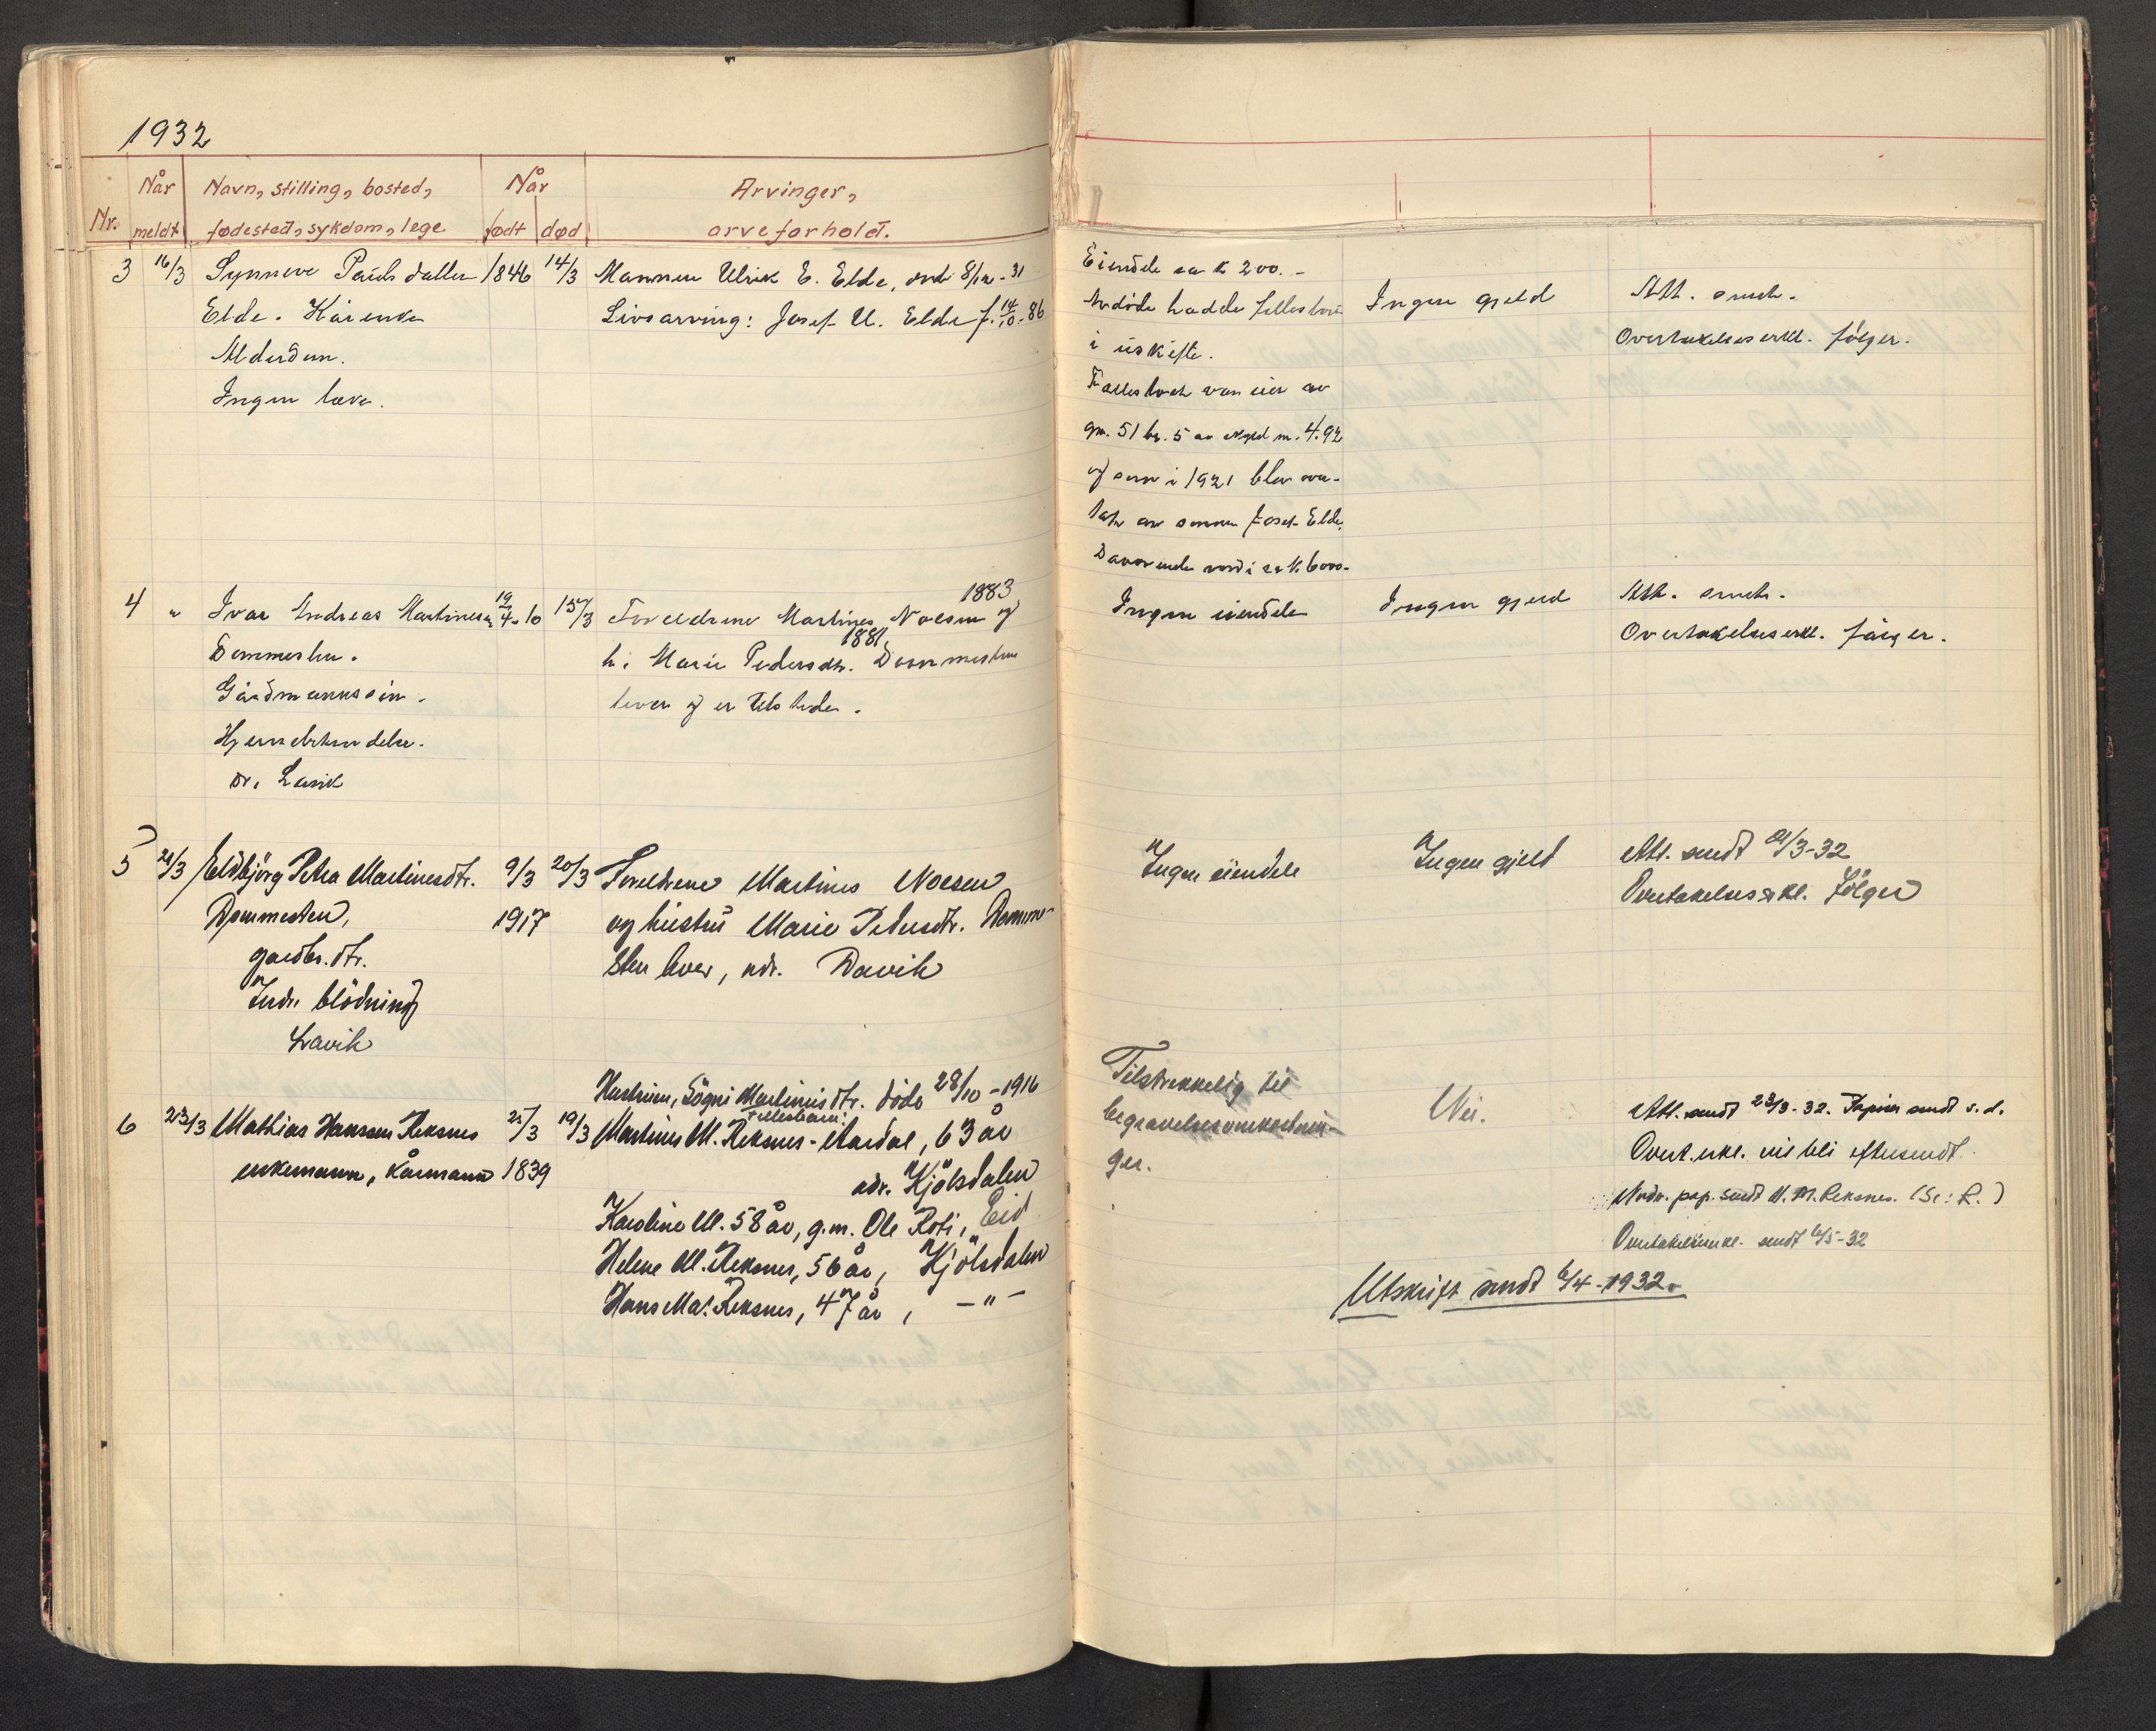 1932
Nr.
Når meldt
Navn, stilling, bosted,
fødested, sykdom, lege
Når
født død
Arvinger,
arveforhold.
3 16/3 Synneve Paulsdatter 1846 14/3 Mannen Ulrik E. Elde, død 8/12-31
Elde. Kårenke Livsarving: Josef U. Elde f. 14/10-86
Alderdom.
Ingen læke.
Eiendele ca k 200.-
Avdøde hadde fellesbo
i uskifte.
Fællesboet var eier av
gn. 51 br. 5 av skyld m. 4.92
og som i 1921 blev over-
tat av sønnen Josef Elde.
Daværende verdi ca k. 6000-
Ingen gjeld
Att. sendt.
Overtakelseserkl. følger.
4 " Ivar Andreas Martinesen 19/4-10 15/3 Foreldrene Martines Noesen 1883 og
Dommesten. h. Marie Pedersdtr. 1881 Dommesten
Gårdmannssøn. lever og er tilstede.
Hjernebetendelse.
Dr. Lavik
Ingen eiendele
Ingen gjeld
Att. sendt.
Overtakelseserkl. følger.
5 21/3 Eldbjörg Petra Martinesdtr. 9/3 20/3 Foreldrene Martines Noesen
Dommesten, 1917 og hustru Marie Pedersdtr. Domme-
gardbr. dtr. sten lever, adr. Davik
Indr. blödning
Lavik
Ingen eiendele
Ingen gjeld
Att. sendt 21/3-32
Overtakelseserkl. følger
Hustruen, Sögni Martinusdtr. döde 28/10-1916
Fellesbarn:
6 23/3 Mathias Hanssen Reksnes 25/3 19/3 Martines M. Reksnes-Aardal, 63 år
enkemann, kårmann 1839 adr. Kjölsdalen
Karoline M. 58 år, g.m. Ole Roti, Eid
Helene M. Reksnes, 56 år, Kjölsdalen
Hans Mat. Reksnes, 47 år, -"-
Tilstrekkelig til
begravelsesomkostnin-
ger.
Nei.
Att. sendt 23/3-32. Papirer sendt s.d.
Overt.erkl. vil bli eftersendt.
Andr. pap. sendt M. M. Reksnes. (Se: R.)
Overtakelseserkl. sendt 6/5-32
Utskrift sendt 6/4-1932.